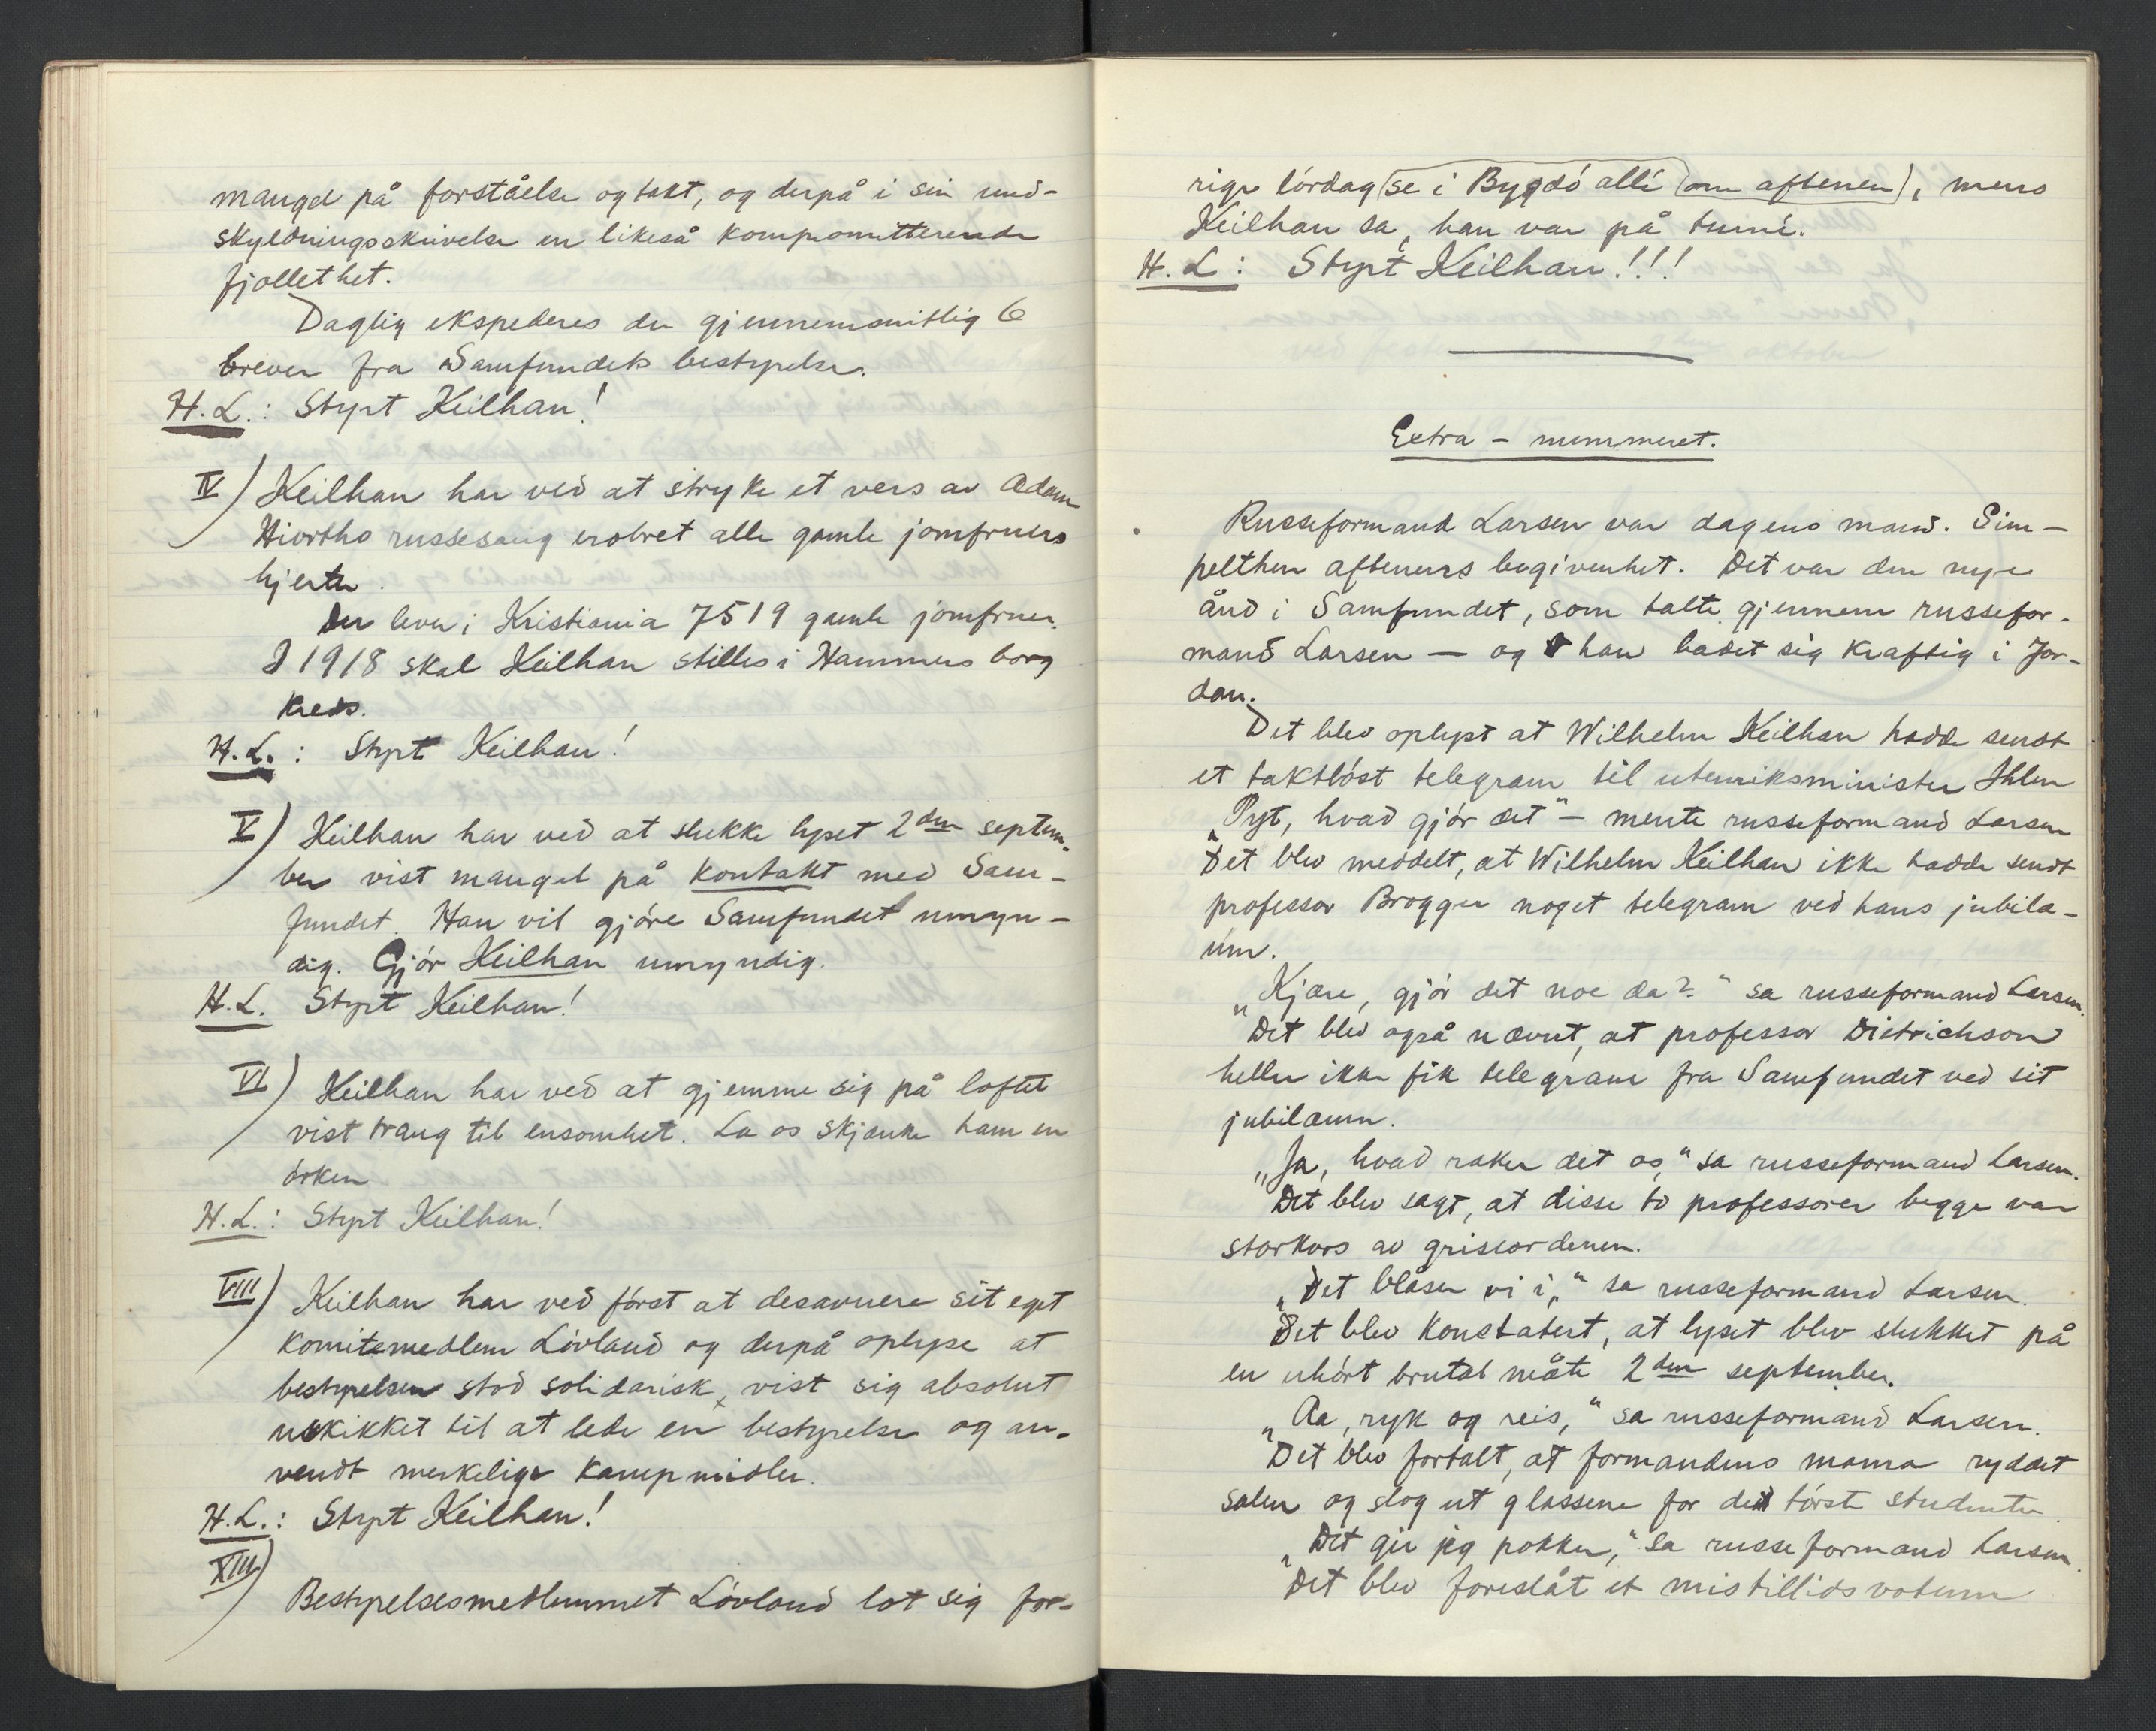 mangel på forståelse og takt, og derpå i sin und-
skyldningsskrivelse en likeså kompromitterende
fjollethet.
Daglig ekspederes der gjennemsnitlig 6
brever fra Samfundets bestyrelse.
H.L.: Styrt Keilhau!
IV) Keilhau har ved at stryke et vers av Adam
Hiorths russesang erobret alle gamle jomfruers
hjerter.
Der lever i Kristiania 7519 gamle jomfruer.
I 1918 skal Keilhau stilles i Hammersborg
kreds.
H.L.: Styrt Keilhau!
V) Keilhau har ved at slukke lyset 2den septem-
ber vist mangel på kontakt med Sam-
fundet. Han vil gjöre Samfundet umyn-
dig. Gjör Keilhau umyndig.
H.L. Styrt Keilhau!
VI) Keilhau har ved at gjemme sig på loftet
vist trang til ensomhet. La os skjænke ham en
örken
H.L.: Styrt Keilhau!
VIII) Keilhau har ved först at desavuere sit eget
komitemedlem Lövland og derpå oplyse at
bestyrelsen stod solidarisk, vist sig absolut
uskikket til at lede en bestyrelse og an-
vendt merkelige kampmidler.
H.L.: Styrt Keilhau!
XIII)
Bestyrelsesmedlemmet Lövland lot sig for-
rige lördag (se i Bygdö allé (om aftenen), mens
Keilhau sa, han var på turné.
H.L: Styrt Keilhau!!!
Extra - nummeret.
Russeformand Larsen var dagens mand. Sim-
pelthen aftenens begivenhet. Det var den nye
ånd i Samfundet, som talte gjennem russefor-
mand Larsen — og han badet sig kraftig i Jor-
dan.
Det blev oplyst at Wilhelm Keilhau hadde sendt
et taktlöst telegram til utenriksminister Ihlen
„Pyt, hvad gjör det" — mente russeformand Larsen
Det blev meddelt, at Wilhelm Keilhau ikke hadde sendt
professor Brøgger noget telegram ved hans jubilæ-
um.
„Kjære, gjör det noe da?" sa russeformand Larsen.
Det blev også nævnt, at professor Dietrichson
heller ikke fik telegram fra Samfundet ved sit
jubilæum.
„Ja, hvad raker det os," sa russeformand Larsen.
Det blev sagt, at disse to professorer begge var
storkors av griseordenen.
„Det blåser vi i," sa russeformand Larsen.
Det blev konstatert, at lyset blev slukket på
en uhört brutal måte 2den september.
„Aa, ryk og reis," sa russeformand Larsen.
Det blev fortalt, at formandens mama ryddet
salen og slog ut glassene for de törste studenter.
„Det gir jeg pokker," sa russeformand Larsen
Det blev foreslåt et mistillidsvotum